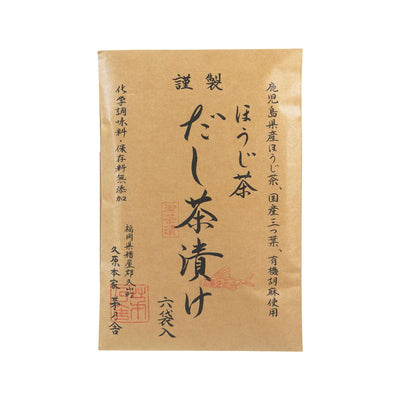 謹製
鹿児島県産ほうじ茶、国産三つ葉、有機胡麻使用
ほうじ茶
だし茶漬け
六袋入
化学調味料・保存料無添加
福岡県糟屋郡久山町
久原本家 茅乃舎